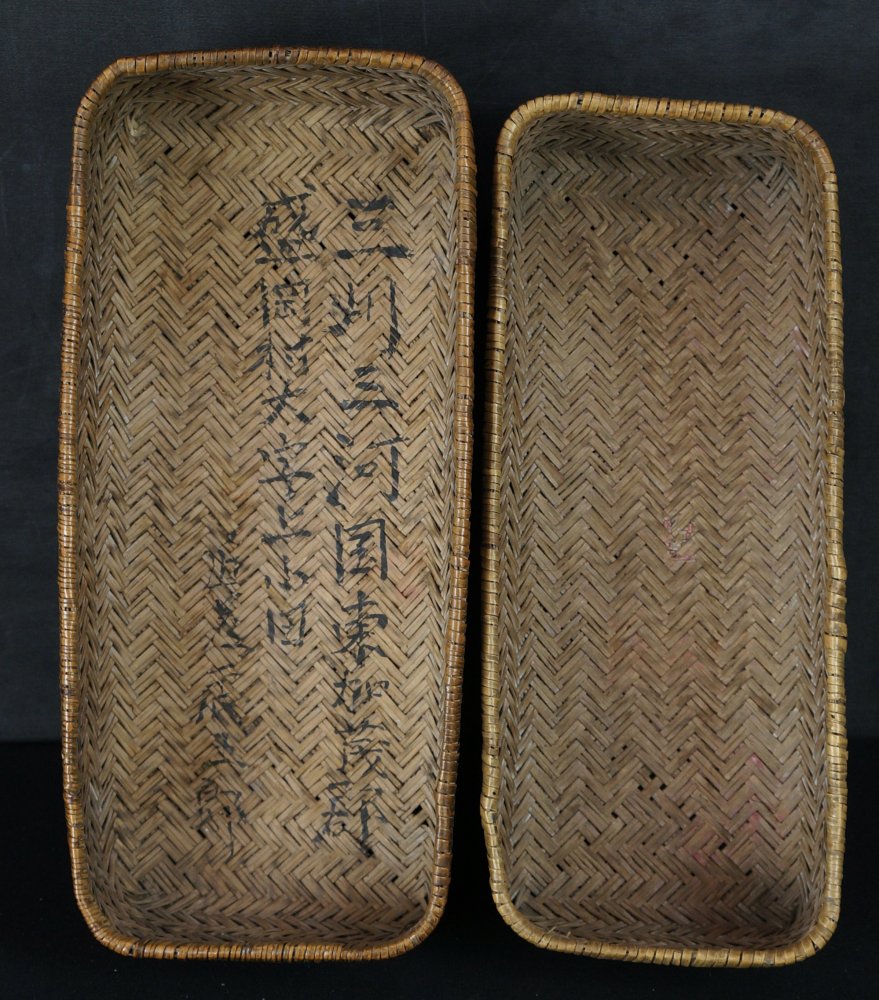 三州三河国東加茂郡
盛岡村大字上小田
郎